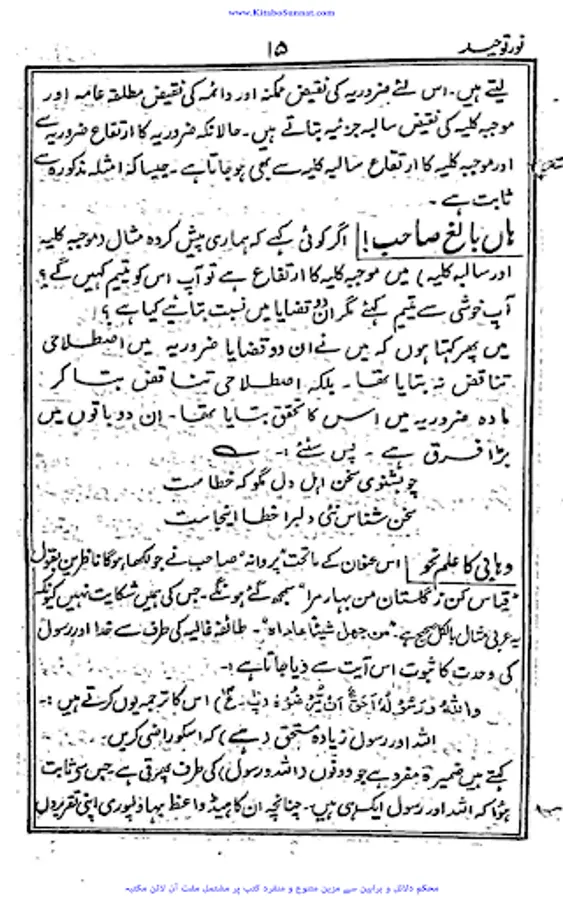 www.KitaboSunnat.com
نور توحید
۱۵
لیتے ہیں۔ اس لئے ضروریہ کی نقیض ممکنہ اور دائمہ کی نقیض مطلقہ عامہ اور
موجبہ کلیہ کی نقیض سالبہ جزئیہ بتاتے ہیں۔ حالانکہ ضروریہ کا ارتفاع ضروریہ سے
اور موجبہ کلیہ کا ارتفاع سالبہ کلیہ سے بھی ہوجاتا ہے۔ جیسا کہ امثلہ مذکورہ سے
ثابت ہے۔
ہاں بالغ صاحب! اگر کوئی کہے کہ ہماری پیش کردہ مثال (موجبہ کلیہ
اور سالبہ کلیہ) میں موجبہ کلیہ کا ارتفاع ہے تو آپ اس کو یتیم کہیں گے؟
آپ خوشی سے یتیم کہئے مگر ان دو قضایا میں نسبت بتائیے کیا ہے؟!
میں پھر کہتا ہوں کہ میں نے ان دو قضایا ضروریہ میں اصطلاحی
تناقض نہ بتایا تھا۔ بلکہ اصطلاحی تناقض بتا کر
مادہ ضروریہ میں اس کا تحقق بتایا تھا۔ ان دو باتوں میں
بڑا فرق ہے۔ پس سنئے :۔ ؎
چو بشنوی سخن اہل دل مگو کہ خطا ست
سخن شناس نئی دلبرا خطا اینجا ست
وہابی کا علم نحو اس عنوان کے ماتحت "پروانہ" صاحب نے جو لکھا ہوگا ناظرین بقول
"قیاس کن ز گلستان من بہار مرا" سمجھ گئے ہونگے۔ جس کی ہمیں شکایت نہیں کیونکہ
یہ عربی مثال بالکل صحیح ہے۔ "من جھل شیئا عاداہ"۔ طائفہ غالیہ کی طرف سے خدا اور رسول
کی وحدت کا ثبوت اس آیت سے دیا جاتا ہے :۔
وَاللّٰهُ وَرَسُوْلُهٗ اَحَقُّ اَنْ يُّرْضُوْهُ (پ۔ ع) اس کا ترجمہ یوں کرتے ہیں :۔
اللہ اور رسول زیادہ مستحق (ہے) کہ اسکو راضی کریں۔
کہتے ہیں ضمیر ہ مفرد ہے جو دونوں (اللہ و رسول) کی طرف پھرتی ہے جس سے ثابت
ہوا کہ اللہ اور رسول ایک ہی ہیں۔ چنانچہ ان کا ہیڈ واعظ بہاولپوری اپنی تقریروں
محکم دلائل و براہین سے مزین متنوع و منفرد کتب پر مشتمل مفت آن لائن مکتبہ